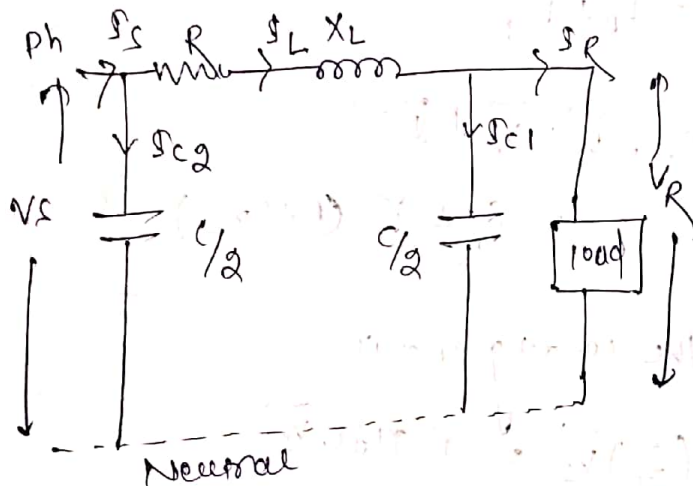 Ph I_S R I_L X_L I_R
I_C2 I_C1
VS C/2 C/2 load V_R
Neutral